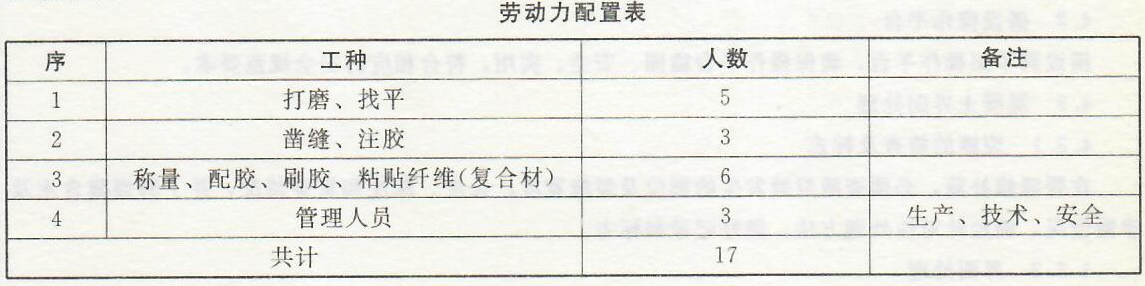 劳动力配置表
序 工种 人数 备注
1 打磨、找平 5
2 凿缝、注胶 3
3 称量、配胶、刷胶、粘贴纤维(复合材) 6
4 管理人员 3 生产、技术、安全
共计 17